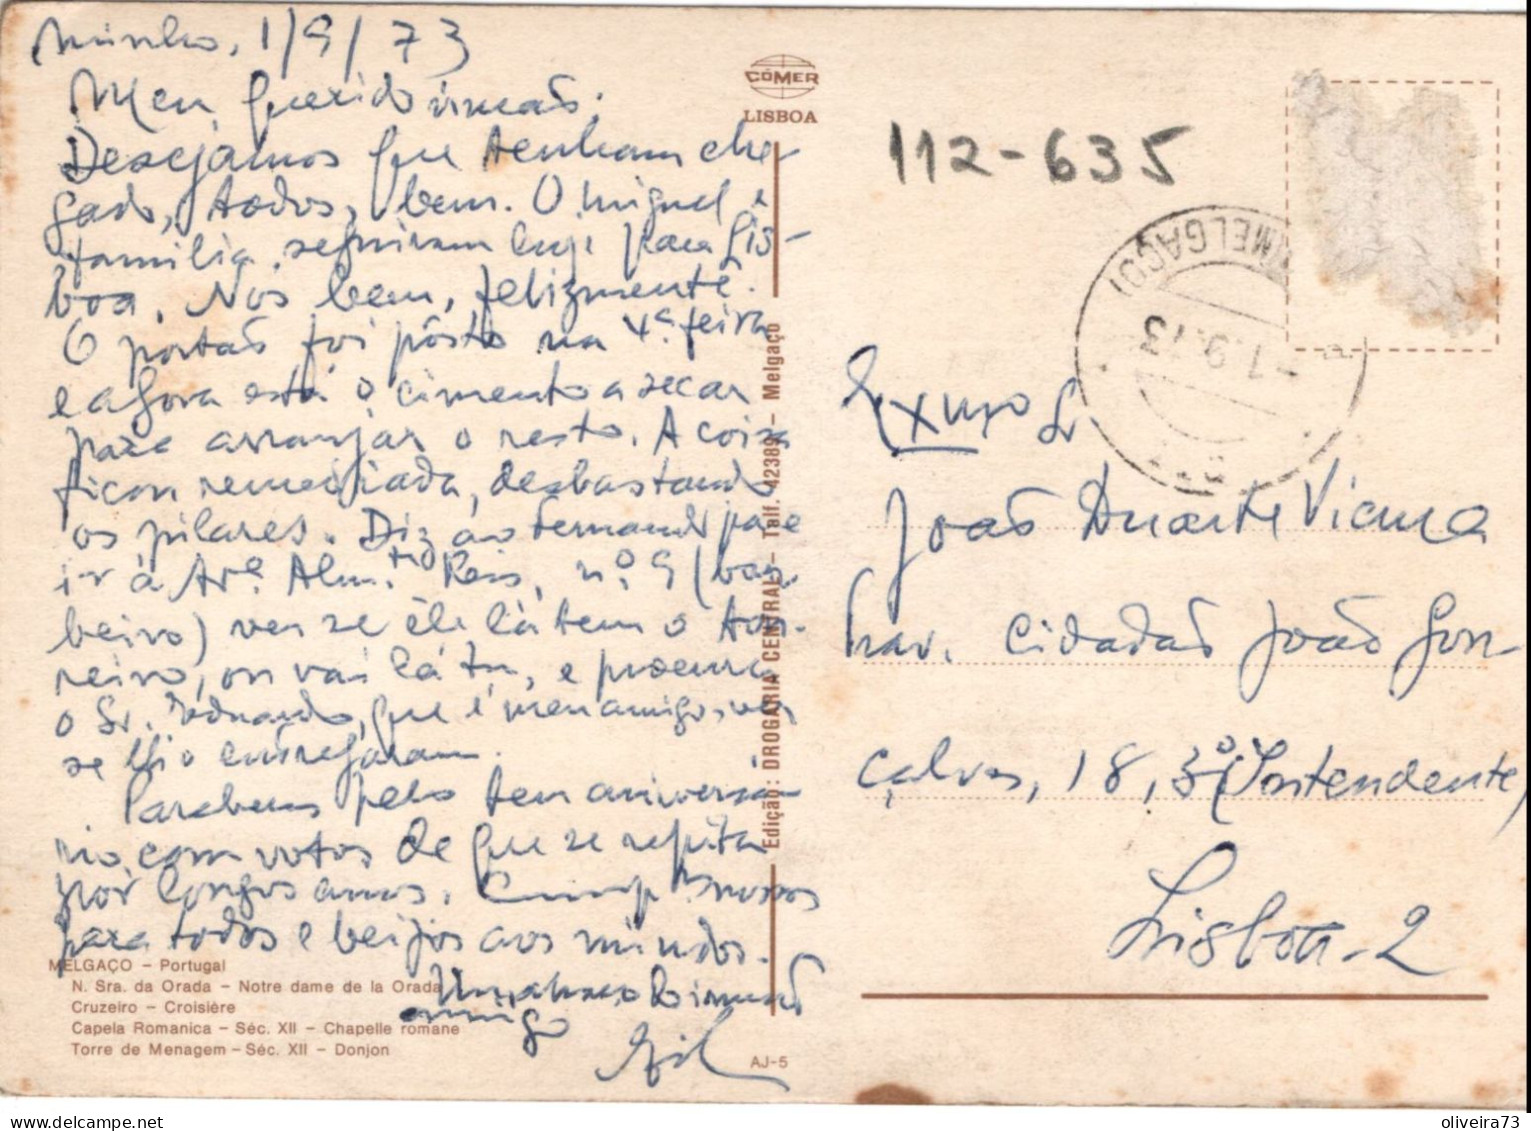 Minho, 1/9/73
Meu querido irmão:
Desejamos que tenham che-
gado, todos, bem. O Miguel e
família, seguiram hoje para Lis-
boa. Nós bem, felizmente.
O portão foi pôsto na 4ª feira
e agora está o cimento a secar
para arranjar o resto. A coisa
ficou remediada, desbastando
os pilares. Diz ao Fernando para
ir à Avª. Alm.te Reis, nº. 9 (bar-
beiro) ver se êle lá tem o tor-
neiro, ou vai lá tu, e procura
o Sr. Eduardo, que é meu amigo, ver
se lho entregaram.
Parabens pelo teu aniversá-
rio com votos de que se repita
por longos anos. Cump. nossos
para todos e beijos aos miudos.
Um abraço do irmão
amigo
Gil
CÓMER
LISBOA
Edição: DROGARIA CENTRAL - Telf. 42389 - Melgaço
MELGAÇO - Portugal
N. Sra. da Orada - Notre dame de la Orada
Cruzeiro - Croisière
Capela Romanica - Séc. XII - Chapelle romane
Torre de Menagem - Séc. XII - Donjon
AJ-5
112-635
(MELGAÇO)
-1.9.73
Exmo Sr
João Duarte Viana
Trav. Cidadão João Gon
çalves, 18, 3º (Intendente)
Lisboa-2
oliveira73